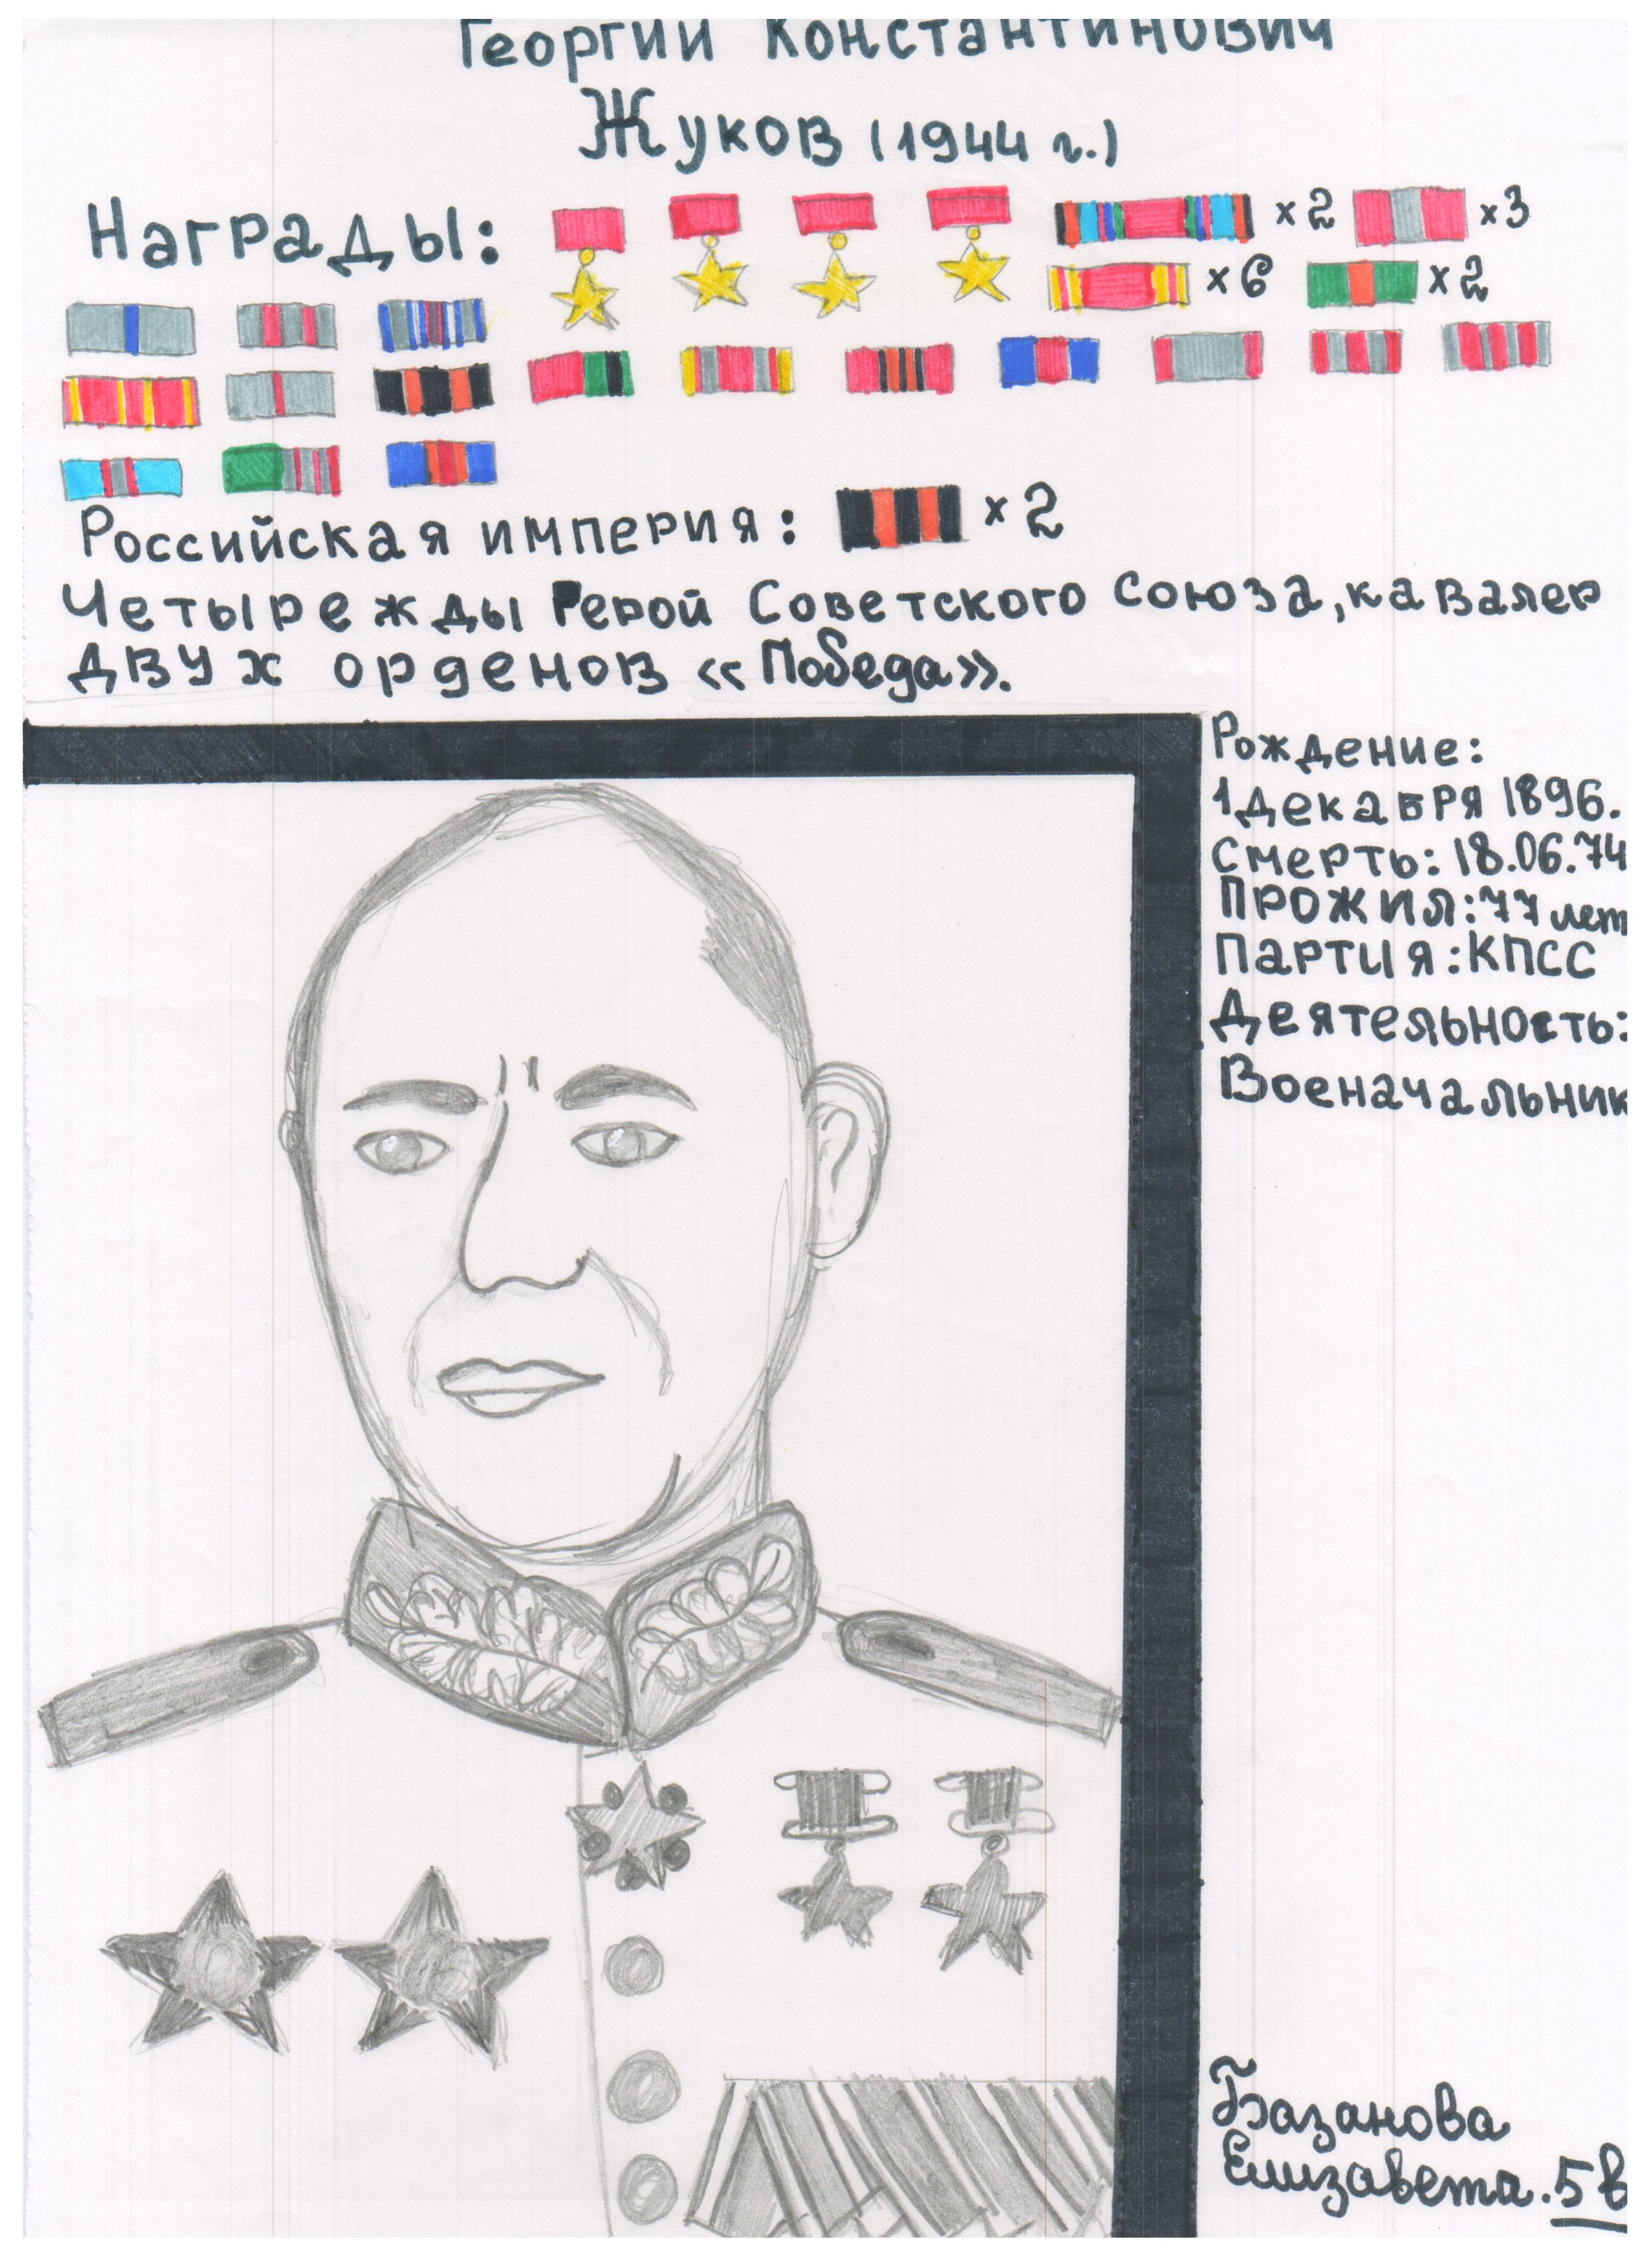 Георгий Константинович
Жуков (1944 г.)
Награды:
×2 ×3
×6 ×2
Российская империя: ×2
Четырежды Герой Советского Союза, кавалер
двух орденов «Победа».
Рождение:
1 декабря 1896.
Смерть: 18.06.74
Прожил: 77 лет
Партия: КПСС
Деятельность:
Военачальник
Базанова
Елизавета. 5в